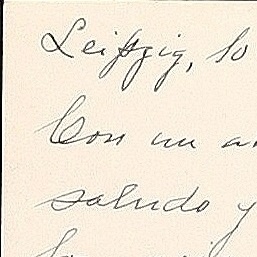 Leipzig, 10
Con un a
saludo y